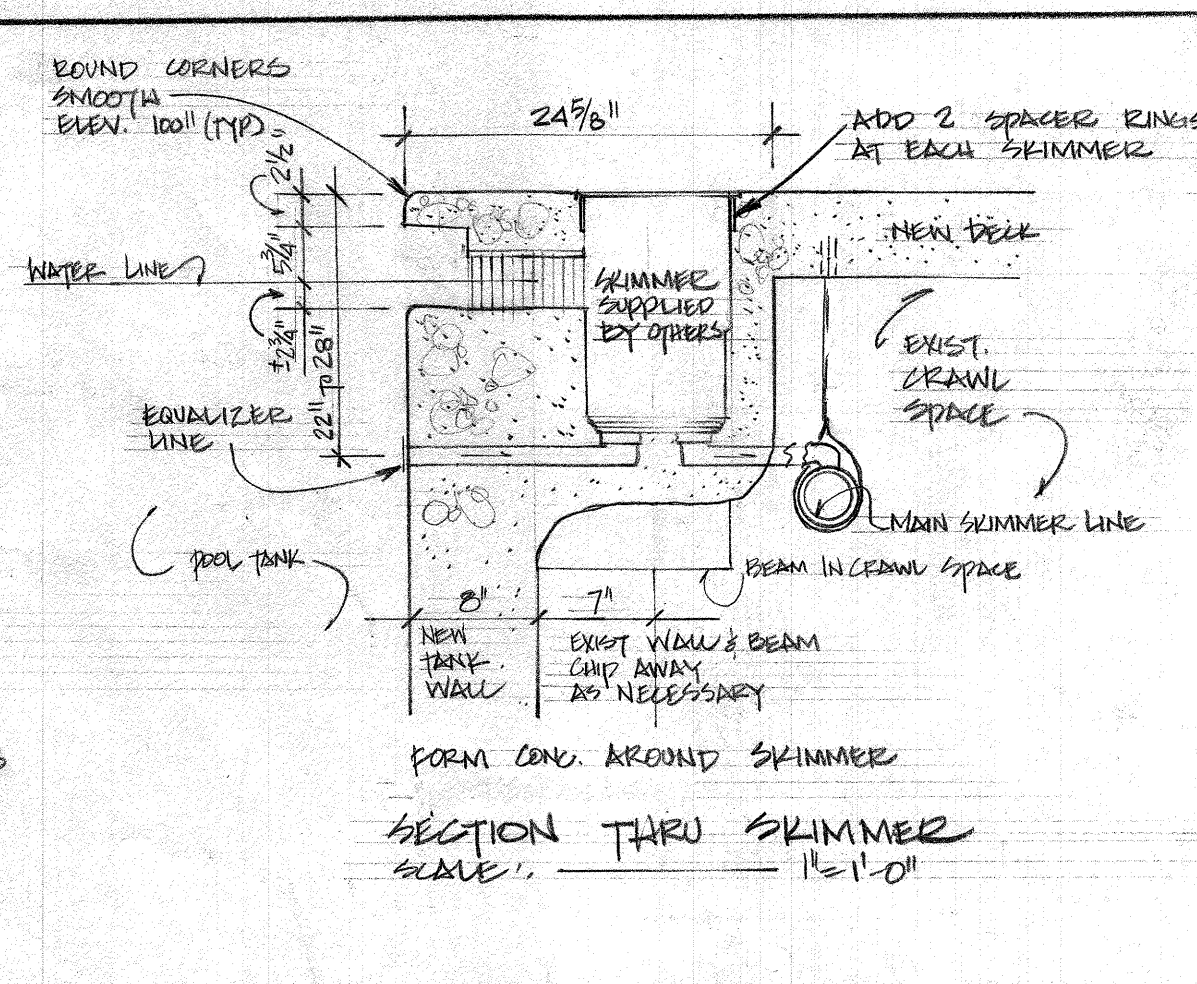 ROUND CORNERS
SMOOTH
ELEV. 100" (TYP)
24 5/8"
ADD 2 SPACER RINGS
AT EACH SKIMMER
2 1/2"
5 3/4"
±2 3/4"
22" TO 28"
WATER LINE
SKIMMER
SUPPLIED
BY OTHERS
NEW DECK
EXIST.
CRAWL
SPACE
EQUALIZER
LINE
MAIN SKIMMER LINE
POOL TANK
BEAM IN CRAWL SPACE
8"
7"
NEW
TANK
WALL
EXIST WALL & BEAM
CHIP AWAY
AS NECESSARY
FORM CONC. AROUND SKIMMER
SECTION THRU SKIMMER
SCALE: 1"=1'-0"